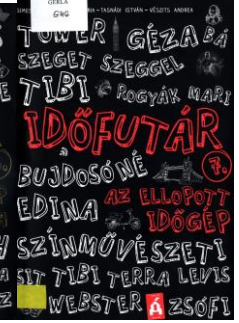 GERLA
TASNÁDI ISTVÁN – VÉSZITS ANDREA
TOWER GÉZA BÁ
SZEGET SZEGGEL
TIBI ROGYÁK MARI
IDŐFUTÁR
a 7.
BUJDOSÓNÉ
EDINA AZ ELLOPOTT
IDŐGÉP
SZÍNMŰVÉSZETI
SIT TIBI TERRA LEVIS
WEBSTER Á ZSÓFI